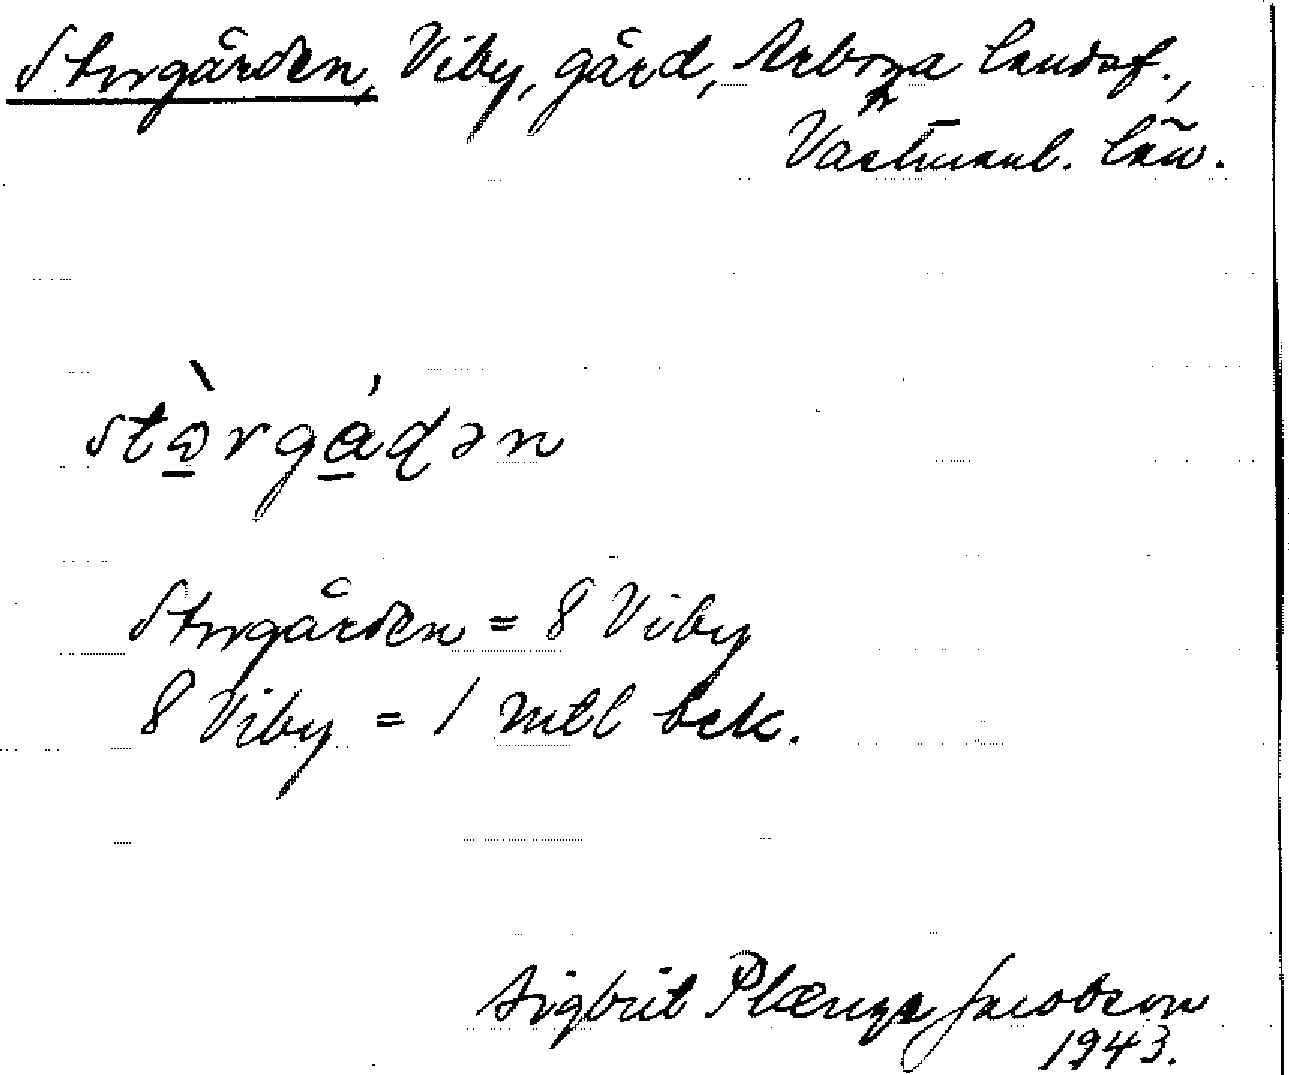 Storgården, Viby, gård, Arboga landsf.,
Västmanl. län.
stòrgádən
Storgården = 8 Viby
8 Viby = 1 mtl bck.
Sigbrit Plænge Jacobson
1943.